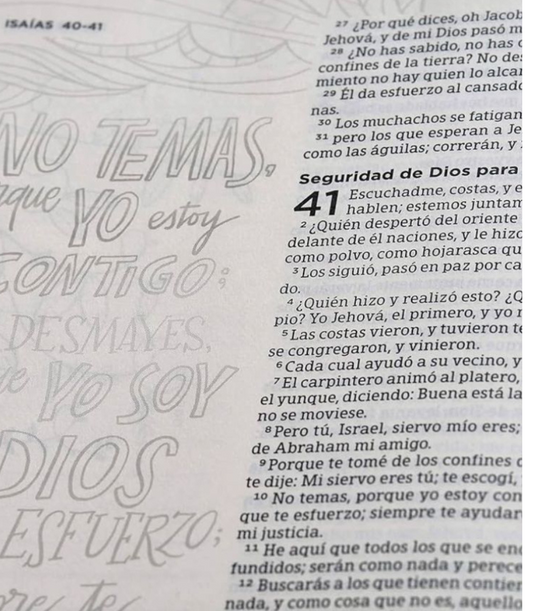 ISAÍAS 40-41
NO TEMAS,
que YO estoy
CONTIGO;
DESMAYES,
YO SOY
DIOS
ESFUERZO;
te
27 ¿Por qué dices, oh Jacob
Jehová, y de mi Dios pasó m
28 ¿No has sabido, no has o
confines de la tierra? No des
miento no hay quien lo alcan
29 Él da esfuerzo al cansado
nas.
30 Los muchachos se fatigan
31 pero los que esperan a Je
como las águilas; correrán, y
Seguridad de Dios para
41 Escuchadme, costas, y e
hablen; estemos juntam
2 ¿Quién despertó del oriente
delante de él naciones, y le hizo
como polvo, como hojarasca qu
3 Los siguió, pasó en paz por ca
do.
4 ¿Quién hizo y realizó esto? ¿Q
pio? Yo Jehová, el primero, y yo
5 Las costas vieron, y tuvieron te
se congregaron, y vinieron.
6 Cada cual ayudó a su vecino, y
7 El carpintero animó al platero,
el yunque, diciendo: Buena está la
no se moviese.
8 Pero tú, Israel, siervo mío eres;
de Abraham mi amigo.
9 Porque te tomé de los confines d
te dije: Mi siervo eres tú; te escogí,
10 No temas, porque yo estoy con
que te esfuerzo; siempre te ayudar
mi justicia.
11 He aquí que todos los que se eno
fundidos; serán como nada y perece
12 Buscarás a los que tienen contien
nada, y como cosa que no es, aquello